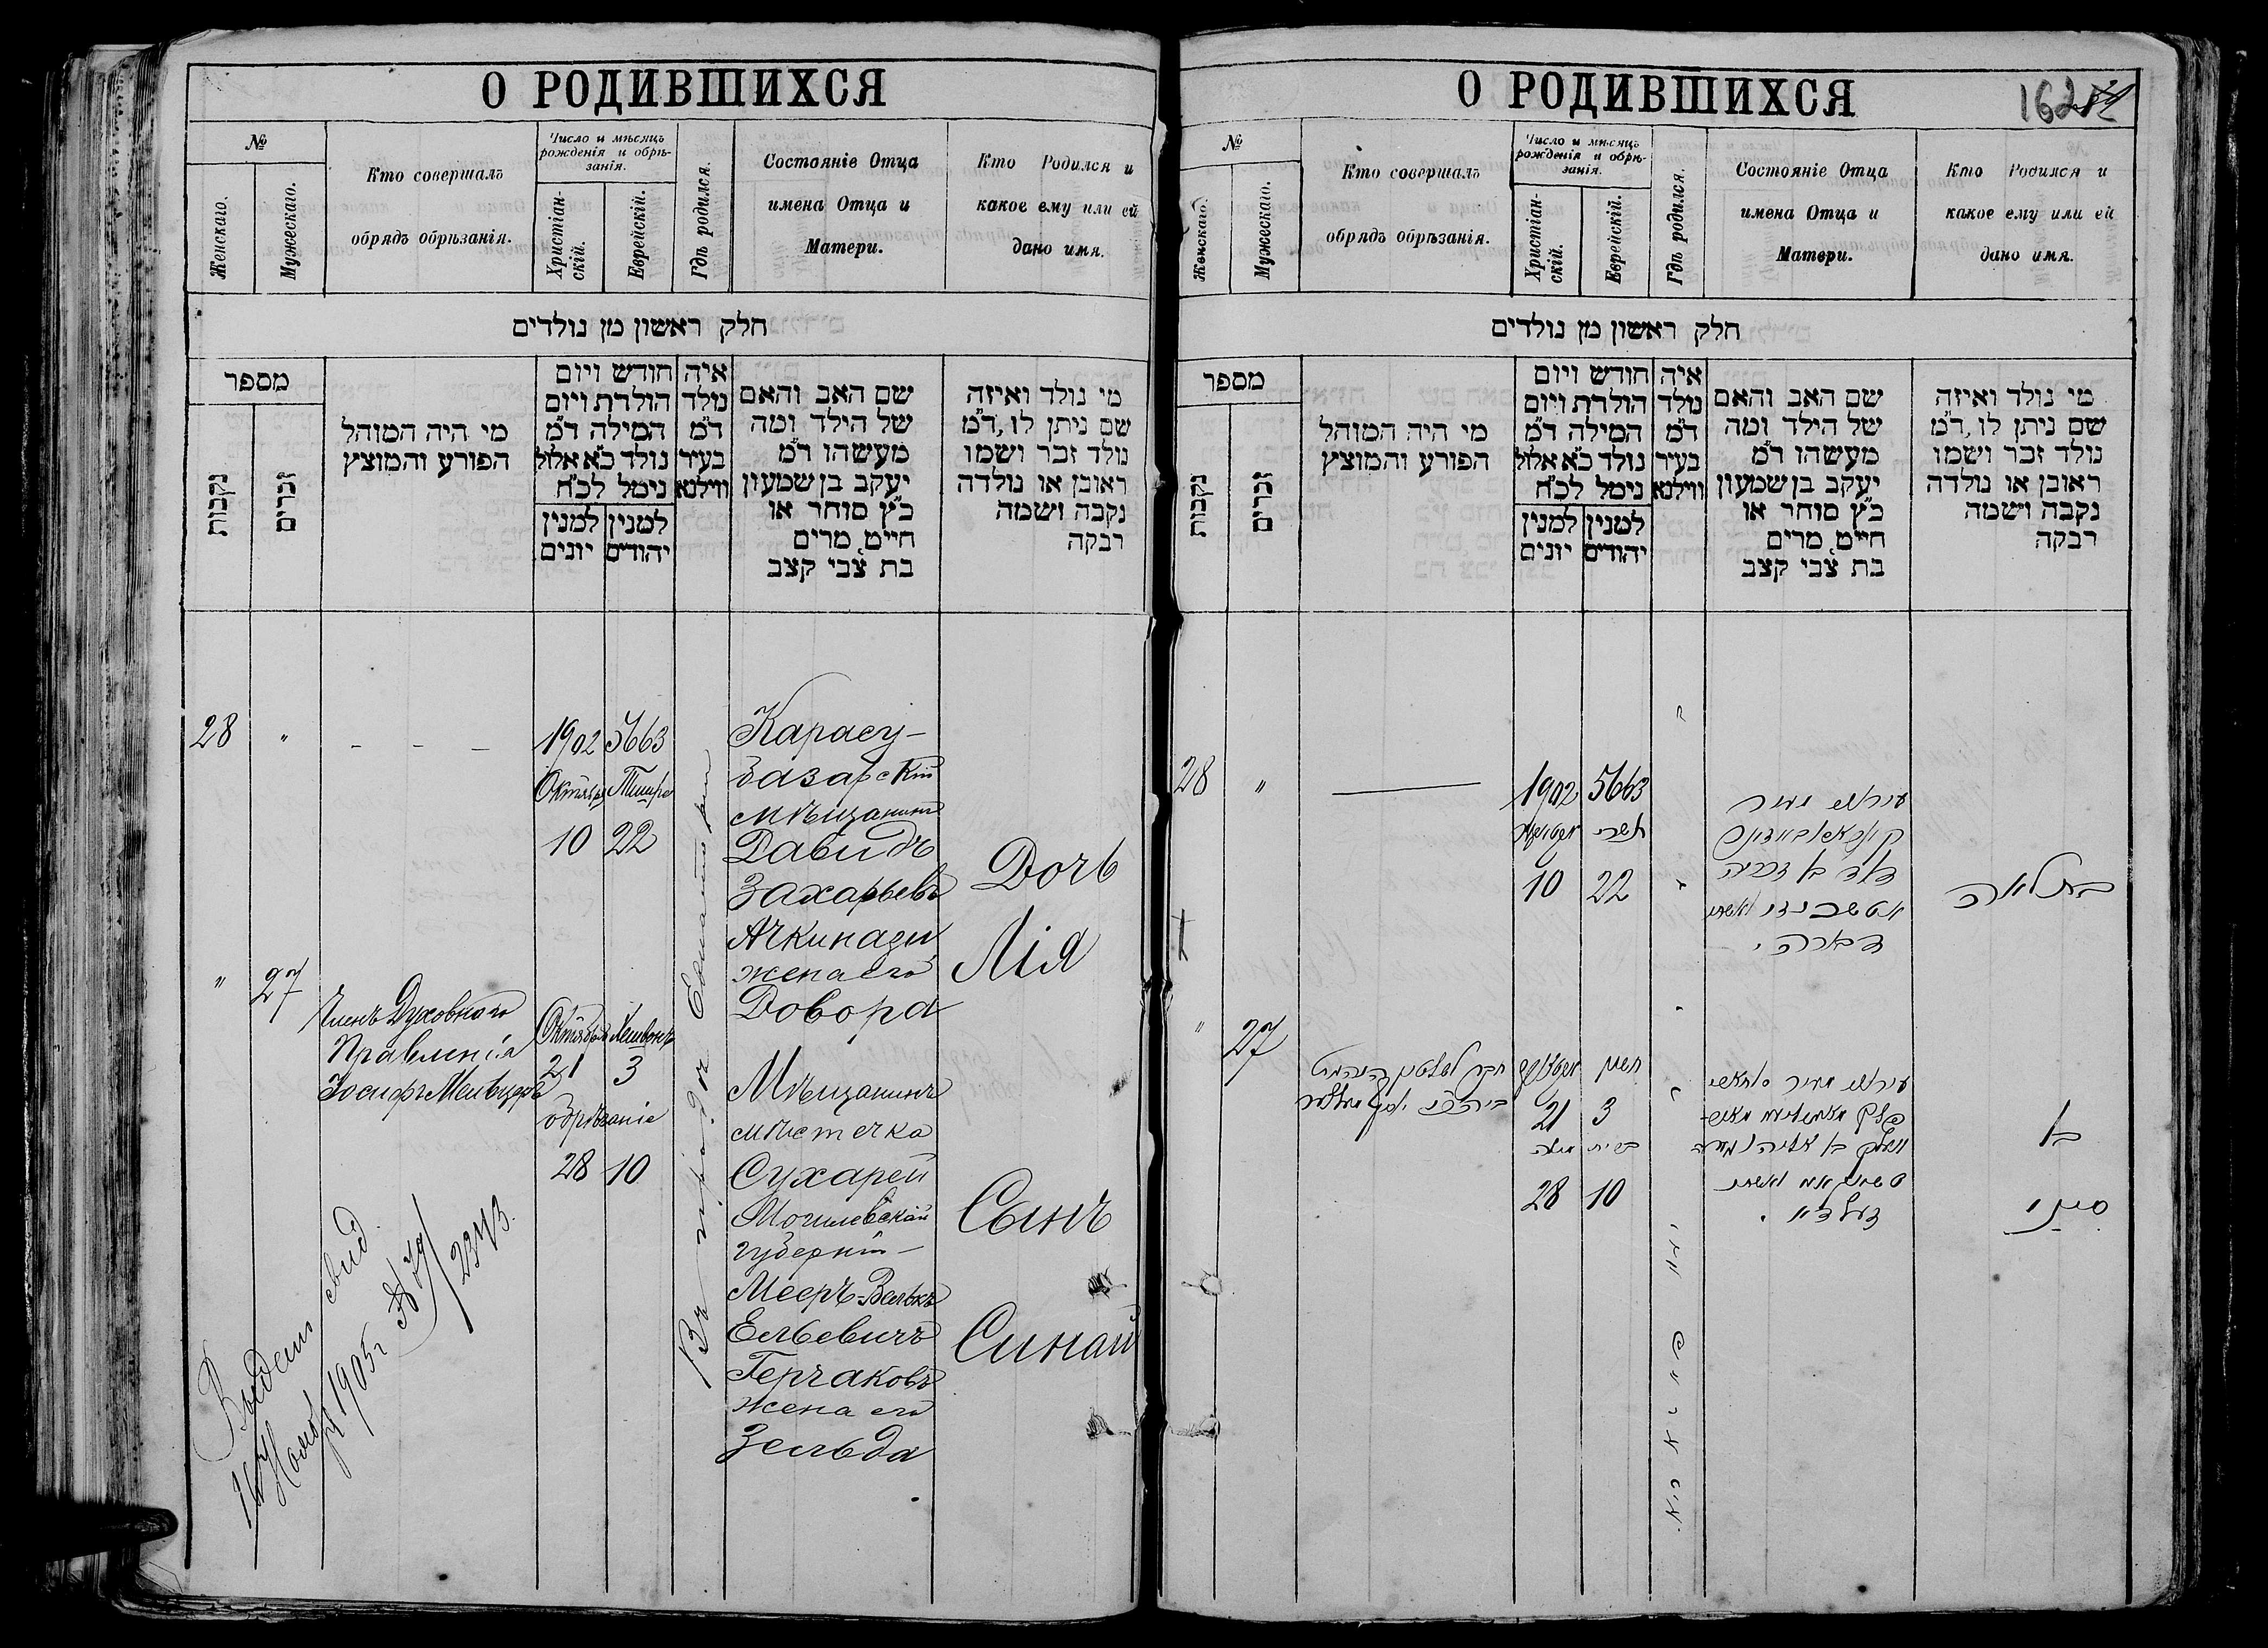 О РОДИВШИХСЯ
№
Женскаго.
Мужескаго.
Кто совершалъ
обрядъ обрѣзанія.
Число и мѣсяцъ
рожденія и обрѣ-
занія.
Христіан-
скій.
Еврейскій.
Гдѣ родился.
Состояніе Отца
имена Отца и
Матери.
Кто Родился и
какое ему или ей
дано имя.
חלק ראשון מן נולדים
מספר
נקבות
זכרים
מי היה המוהל
הפורע והמוצץ
חודש ויום
הולדת ויום
המילה ד״מ
נולד כ״א אלול
נימל לכ״ח
למנין
יונים
למנין
יהודים
איה
נולד
ד״מ
בעיר
ווילנא
שם האב והאם
של הילד ומה
מעשהו ד״מ
יעקב בן שמעון
כ״ץ סוחר או
חייט, מרים
בת צבי קצב
מי נולד ואיזה
שם ניתן לו, ד״מ
נולד זכר ושמו
ראובן או נולדה
נקבה ושמה
רבקה
28 " - - -
1902 5663
Октября Тишре
10 22
Карасу-
базарскій
мѣщанинъ
Давидъ
Захарьевъ
Ачкинази
жена его
Довора
Дочь
Лія
" 27
Членъ Духовнаго
Правленія
Іосифъ
Октября Хешвонъ
21 3
обрѣзаніе
28 10
Въ городѣ
Мѣщанинъ
мѣстечка
Сухарей
Могилевской
губерніи
Мееръ-Вольвъ
Ельевичъ
Герчаковъ
жена его
Зельда
Сынъ
Синай
Выдано свид.
Нояб 1905г № 79
2343.
О РОДИВШИХСЯ
162
№
Женскаго.
Мужескаго.
Кто совершалъ
обрядъ обрѣзанія.
Число и мѣсяцъ
рожденія и обрѣ-
занія.
Христіан-
скій.
Еврейскій.
Гдѣ родился.
Состояніе Отца
имена Отца и
Матери.
Кто Родился и
какое ему или ей
дано имя.
חלק ראשון מן נולדים
מספר
נקבות
זכרים
מי היה המוהל
הפורע והמוצץ
חודש ויום
הולדת ויום
המילה ד״מ
נולד כ״א אלול
נימל לכ״ח
למנין
יונים
למנין
יהודים
איה
נולד
ד״מ
בעיר
ווילנא
שם האב והאם
של הילד ומה
מעשהו ד״מ
יעקב בן שמעון
כ״ץ סוחר או
חייט, מרים
בת צבי קצב
מי נולד ואיזה
שם ניתן לו, ד״מ
נולד זכר ושמו
ראובן או נולדה
נקבה ושמה
רבקה
28 "
1902 5663
תשרי
10 22
עירוני מעיר
דוד בן זכריה
אשכנזי ואשתו
דבורה
בת לאה
" 27
21 3
ברית מילה
28 10
עירוני מעיר
בן אליהו
ואשתו
זעלדא
בן
סיני